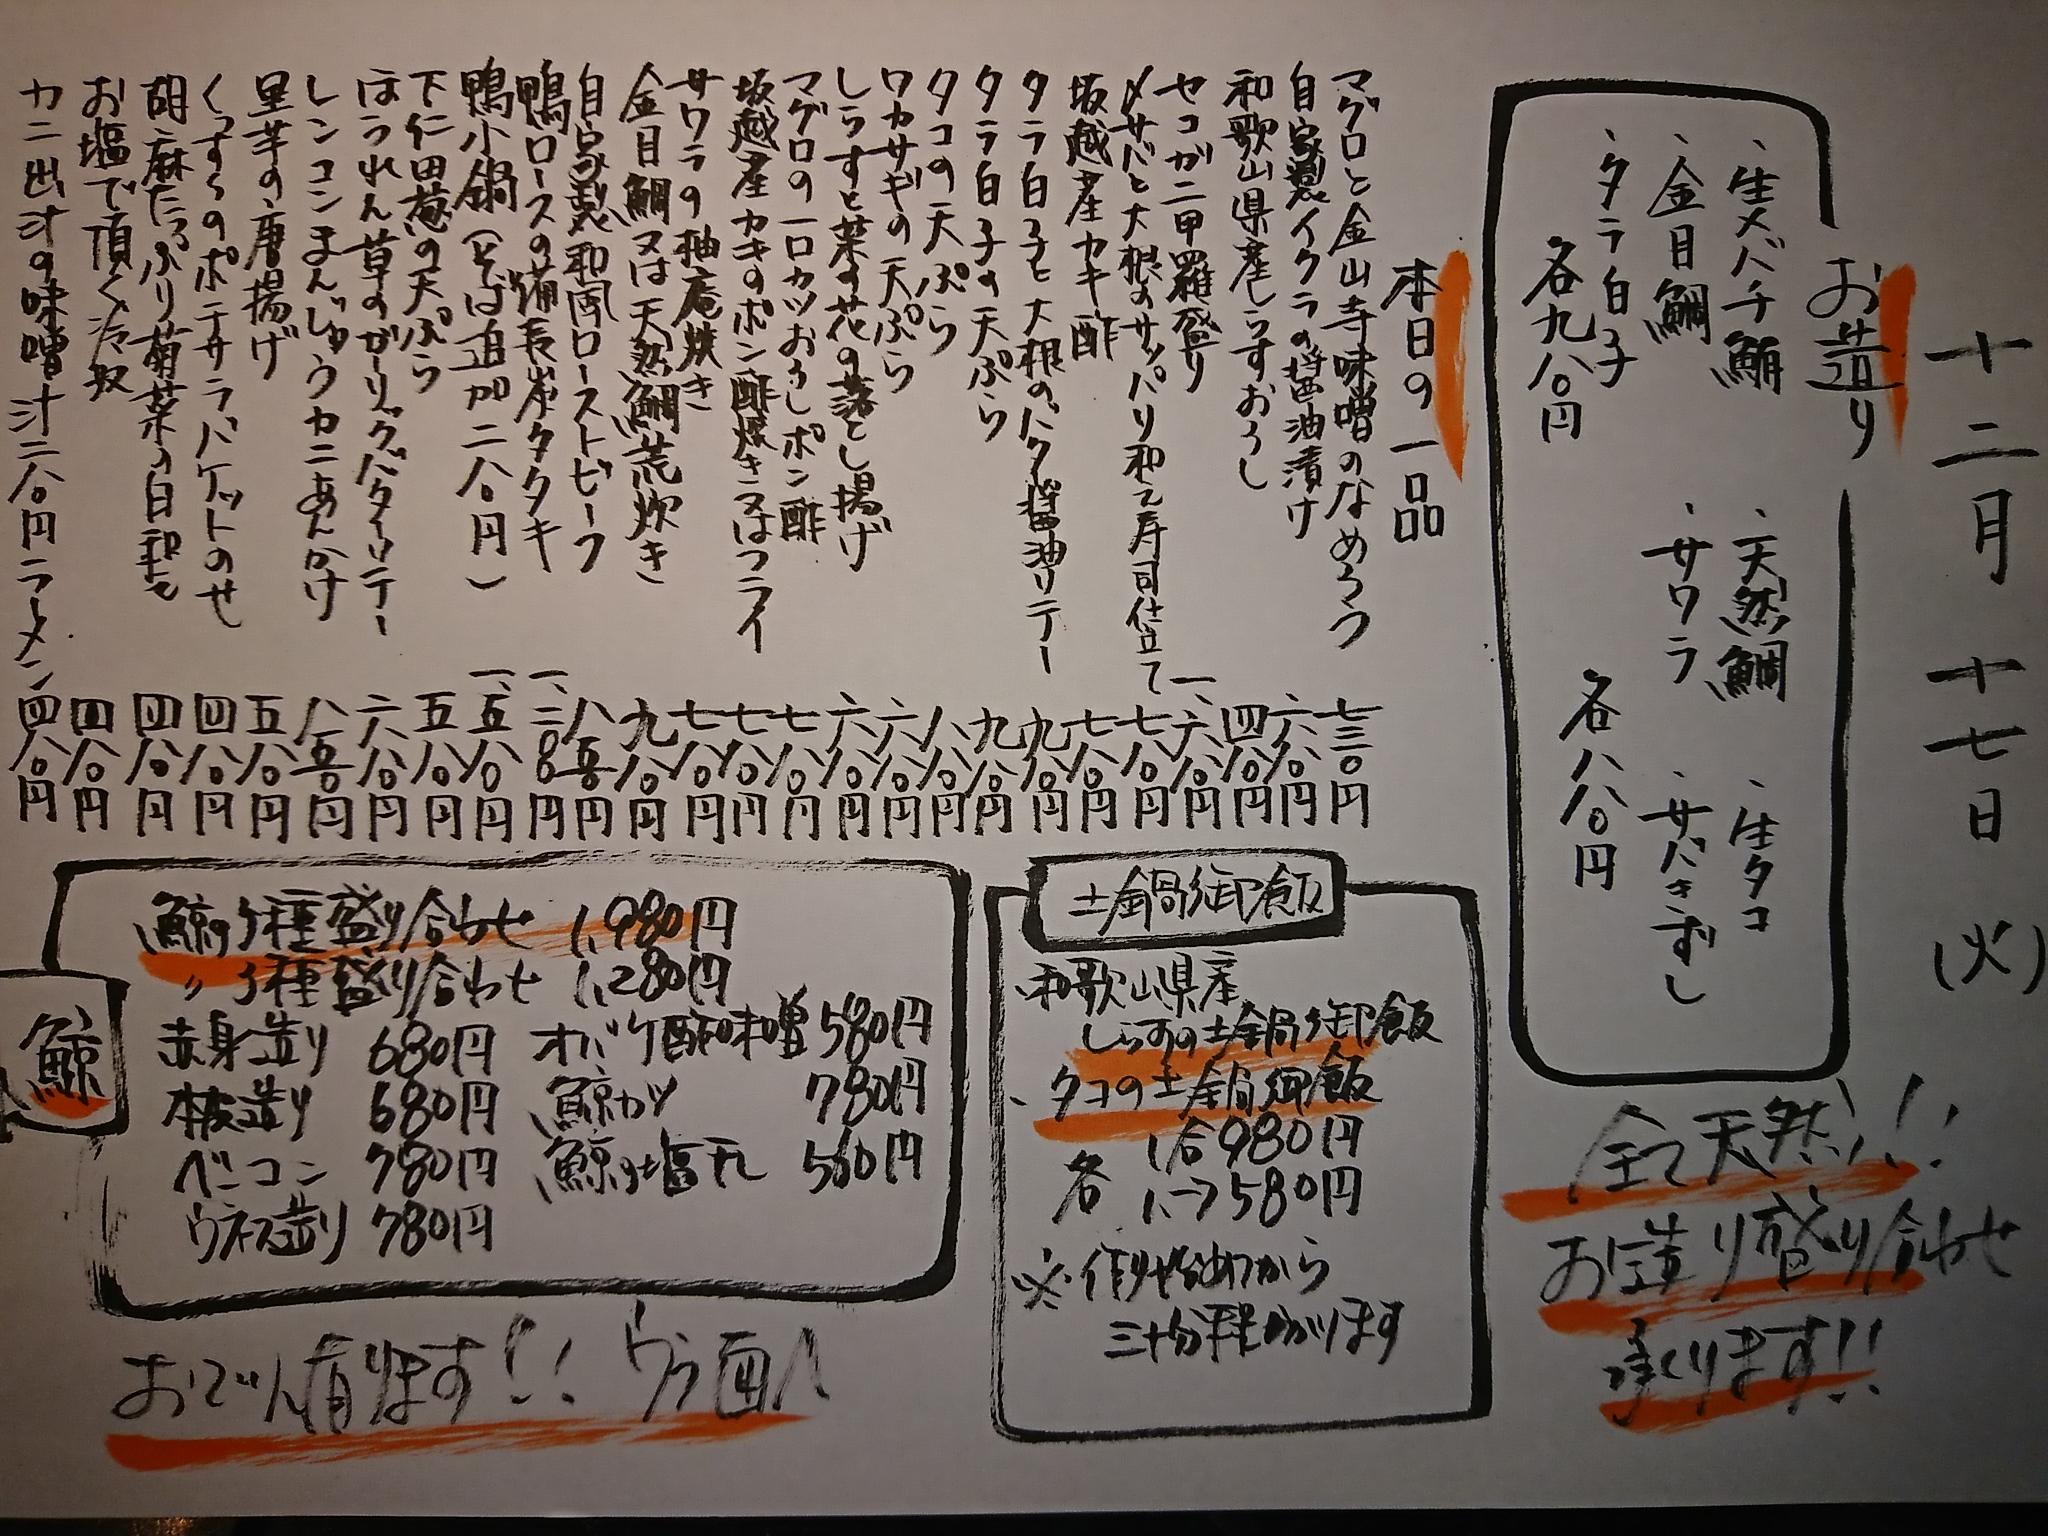 十二月十七日(火)
お造り
・生メバチ鮪
・金目鯛
・タラ白子
各九八〇円
・天然鯛
・サワラ
・生タコ
・サバきずし
各八八〇円
全て天然!!
お造り盛り合わせ
承ります!!
本日の一品
マグロと金山寺味噌のなめろう 七三〇円
自家製イクラの醤油漬け 六八〇円
和歌山県産しらすおろし 四八〇円
セコガニ甲羅盛り 一、六八〇円
〆サバと大根のサッパリ和え寿司仕立て 七八〇円
坂越産カキ酢 七八〇円
タラ白子と大根のバター醤油ソテー 九八〇円
タラ白子の天ぷら 九八〇円
タコの天ぷら 八八〇円
ワカサギの天ぷら 六八〇円
しらすと菜の花の落とし揚げ 六八〇円
マグロの一口カツおろしポン酢 七八〇円
坂越産カキのポン酢焼き又はフライ 七八〇円
サワラの柚庵焼き 七八〇円
金目鯛又は天然鯛荒炊き 九八〇円
自家製和風ローストビーフ 八五〇円
鴨ロースの備長炭タタキ 一、二八〇円
鴨小鍋(そば追加二八〇円) 一、五八〇円
下仁田葱の天ぷら 五八〇円
ほうれん草のガーリックバターソテー 六八〇円
レンコンまんじゅうカニあんかけ 八五〇円
里芋の唐揚げ 五八〇円
くっする のポテサラバケットのせ 四八〇円
胡麻たっぷり菊菜の白和え 四八〇円
お塩で頂く冷奴 四八〇円
カニ出汁の味噌汁二八〇円ラーメン 四八〇円
土鍋御飯
・和歌山県産
しらすの土鍋御飯
・タコの土鍋御飯
各 1合980円
1.5〃1580円
※作り始めてから
三十分程かかります
鯨
鯨の5種盛り合わせ 1,980円
〃 3種盛り合わせ 1,280円
赤身造り 680円
本皮造り 680円
ベーコン 780円
ウネス造り 780円
オバケ酢味噌 580円
鯨カツ 780円
鯨の塩タレ 560円
おでん有ります!! ウラ面へ